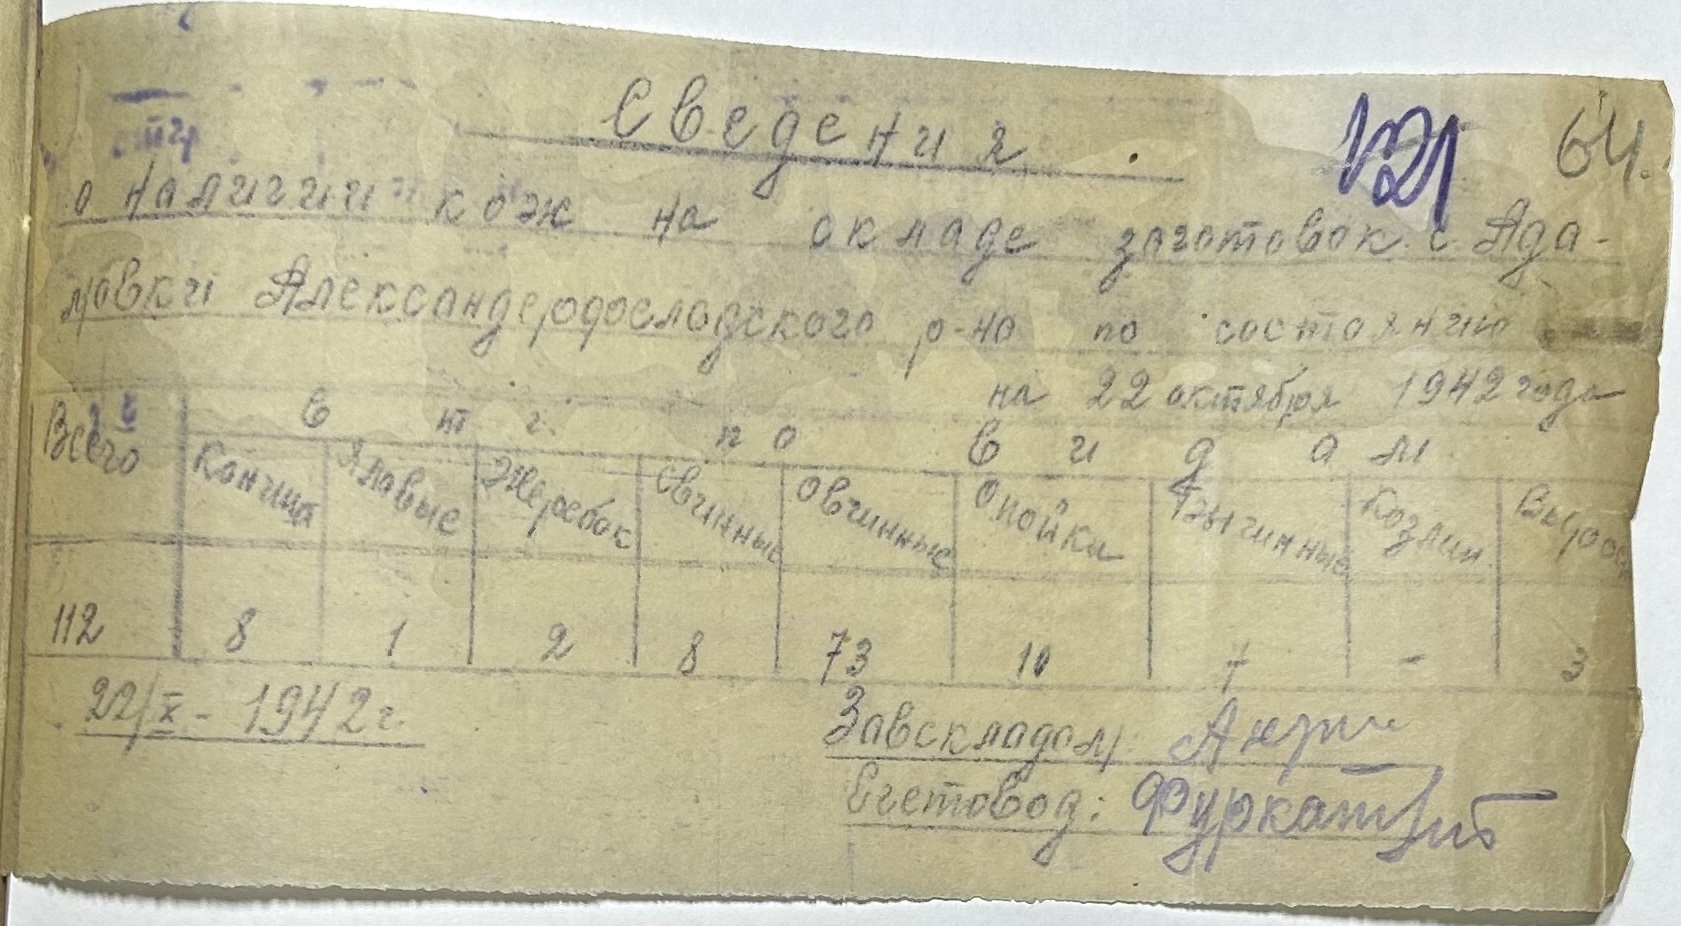 Сведения
121 64.
о налигии кож на складе заготовок с Ада-
мовки Александеродосладского р-на по состоянию
на 22 октября 1942 года
Всего в т. г. по видам
Конина Яловые Жеребок Свинные Овчинные Опойки Бычинные Козлин. Вырост
112 8 1 2 8 73 10 7 - 3
22/X - 1942 г.
Завскладом
Счетовод: